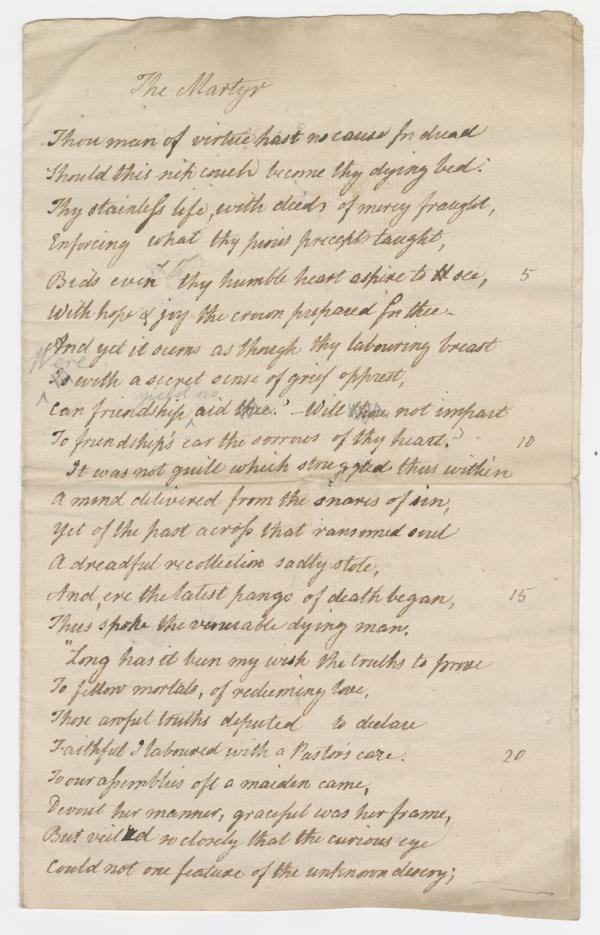 The Martyr
Thou man of virtue hast no cause for dread
Should this sick couch become thy dying bed.
Thy stainless life, with deeds of mercy fraught,
Enforcing what thy pious precept taught,
Bids even thy humble heart aspire to see, 5
With hope & joy the crown prepared for thee.
And yet it seems as though thy labouring breast
Were
Is with a secret sense of grief opprest,
yield no
Can friendship ^ aid thee? – Will thou not impart
To friendship's ear the sorrows of thy heart? 10
It was not guilt which struggled thus within
A mind delivered from the snares of sin,
Yet of the past across that ransomed soul
A dreadful recollection sadly stole,
And, ere the latest pangs of death began, 15
Thus spoke the venerable dying man.
"Long has it been my wish the truths to prove
To fellow mortals, of redeeming love,
Those awful truths deputed to declare
Faithful I laboured with a Pastor's care. 20
To our assemblies oft a maiden came,
Devout her manner, graceful was her frame,
But veil'd so closely that the curious eye
Could not one feature of the unknown descry;